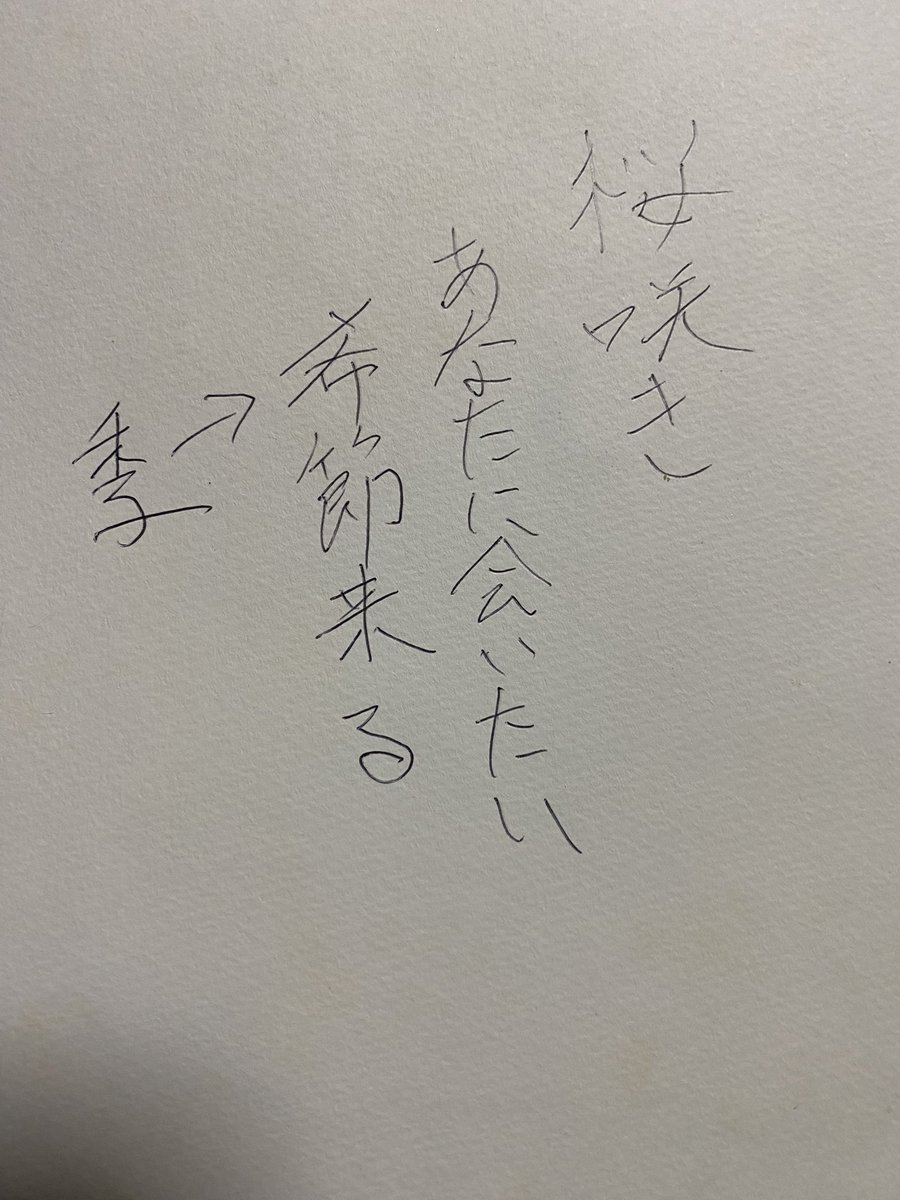 桜咲き
あなたに会いたい
希節来る
季→